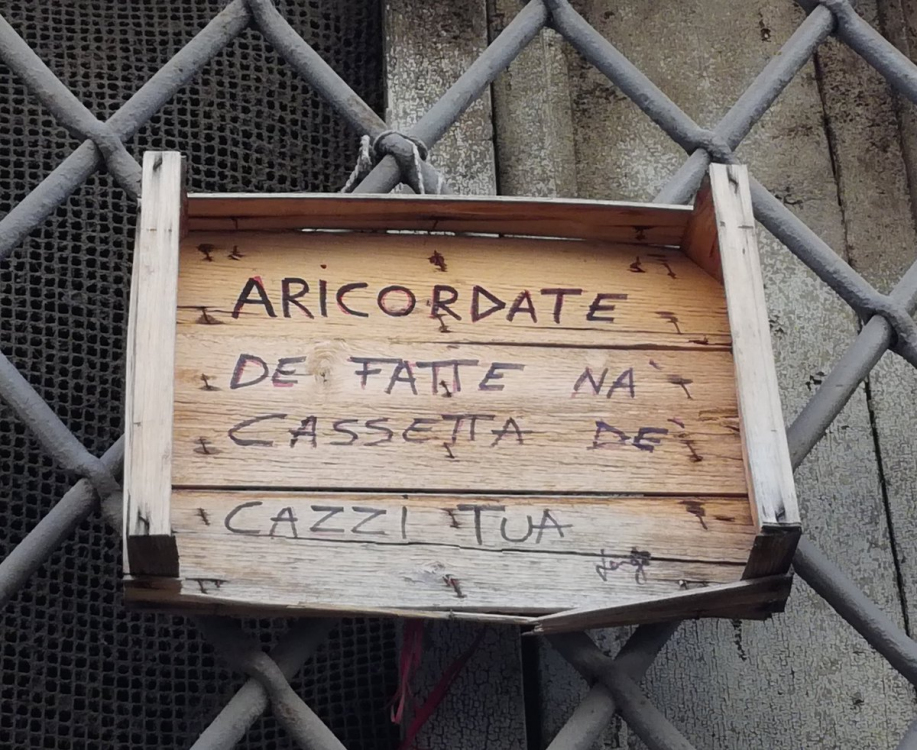 ARiCORDATE
DE FATTE NA`
CASSETTA DE`
CAZZi TUA